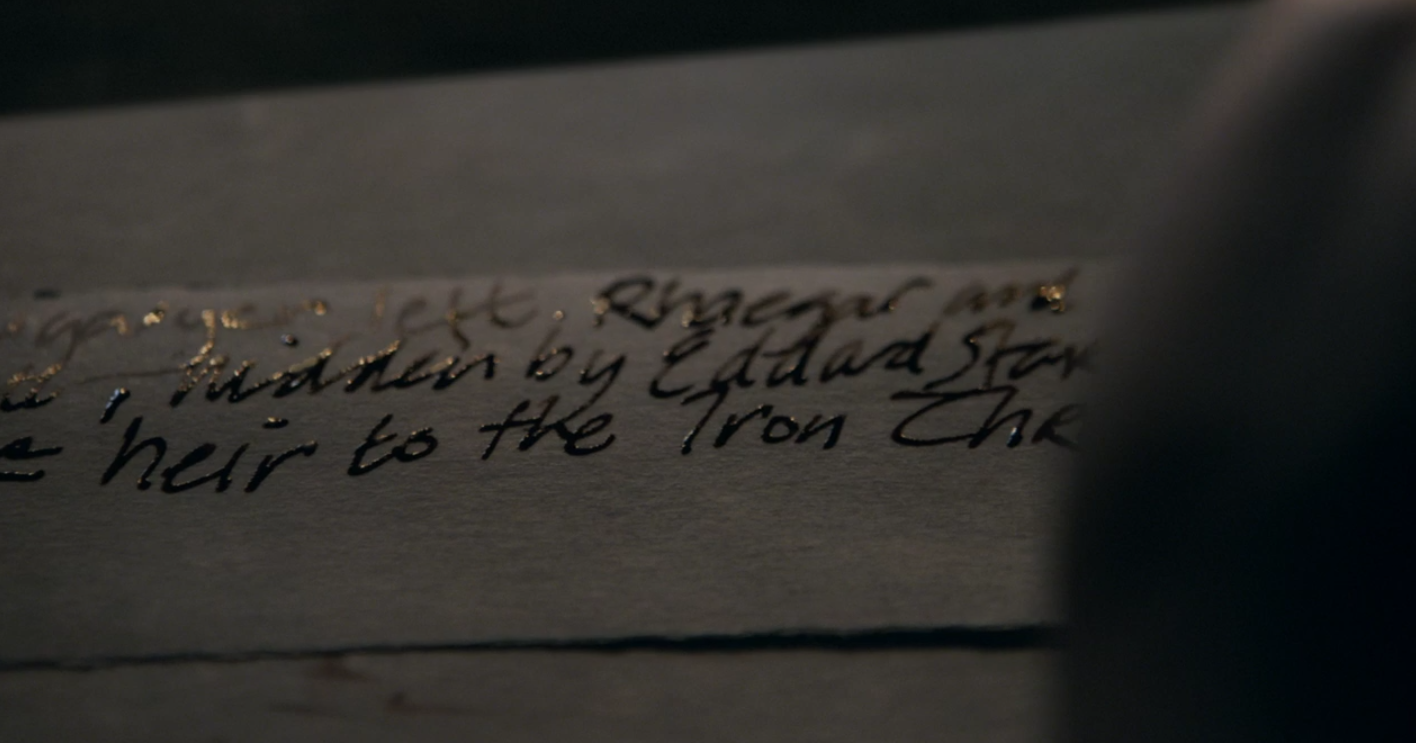 left, Rhaegar and
, hidden by Eddard Star
heir to the Iron Thr